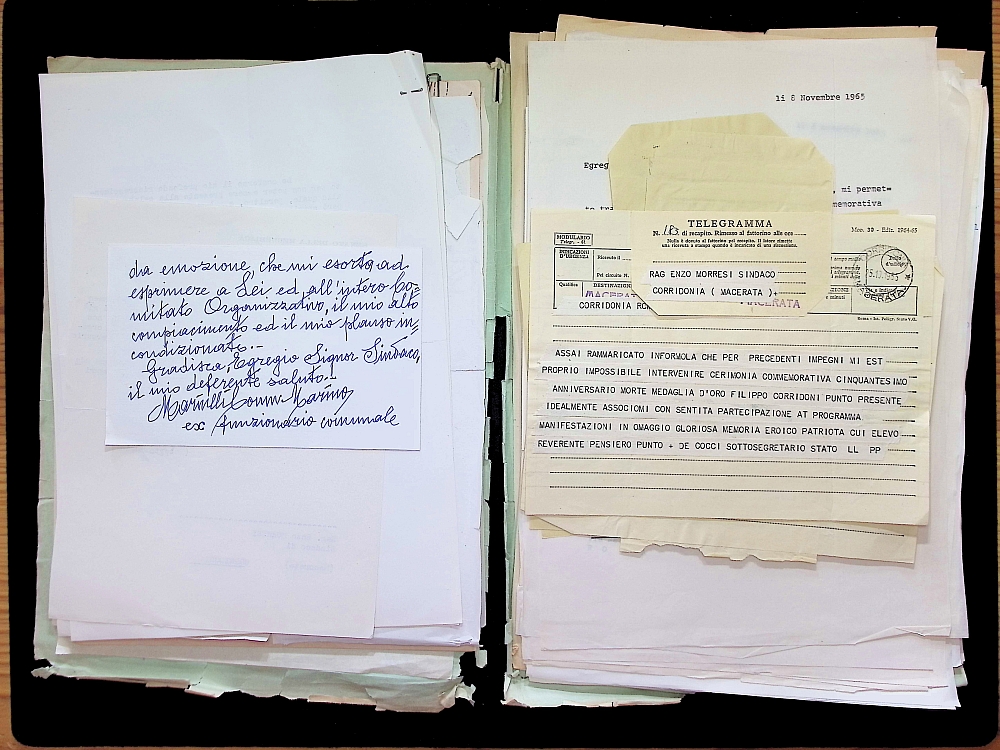 da emozione, che mi esorta ad
esprimere a Lei ed all'intero Co=
mitato Organizzativo, il mio alto
compiacimento ed il mio plauso in=
condizionato..
Gradisca, Egregio Signor Sindaco,
il mio deferente saluto..
Marinelli Comm. Marino,
ex funzionario comunale
li 8 Novembre 1965
Egreg
, mi permet=
memorativa
TELEGRAMMA
N. 183 di recapito. Rimesso al fattorino alle ore
Nulla è dovuto al fattorino pel recapito. Il fattorino rimette
una ricevuta a stampa quando è incaricato di una riscossione.
MODULARIO
Telegr. - 61
Mod. 30 - Ediz. 1964-65
INDICAZIONI
D'URGENZA
Ricevuto il
Pel circuito N.
Qualifica
DESTINAZIONE
RAG ENZO MORRESI SINDACO
CORRIDONIA ( MACERATA )+
MACERAT
MACERATA
CORRIDONIA ROM
Roma - Ist. Poligr. Stato V.R.
ASSAI RAMMARICATO INFORMOLA CHE PER PRECEDENTI IMPEGNI MI EST
PROPRIO IMPOSSIBILE INTERVENIRE CERIMONIA COMMEMORATIVA CINQUANTESIMO
ANNIVERSARIO MORTE MEDAGLIA D'ORO FILIPPO CORRIDONI PUNTO PRESENTE
IDEALMENTE ASSOCIOMI CON SENTITA PARTECIPAZIONE AT PROGRAMMA
MANIFESTAZIONI IN OMAGGIO GLORIOSA MEMORIA EROICO PATRIOTA CUI ELEVO
REVERENTE PENSIERO PUNTO + DE COCCI SOTTOSEGRETARIO STATO LL PP